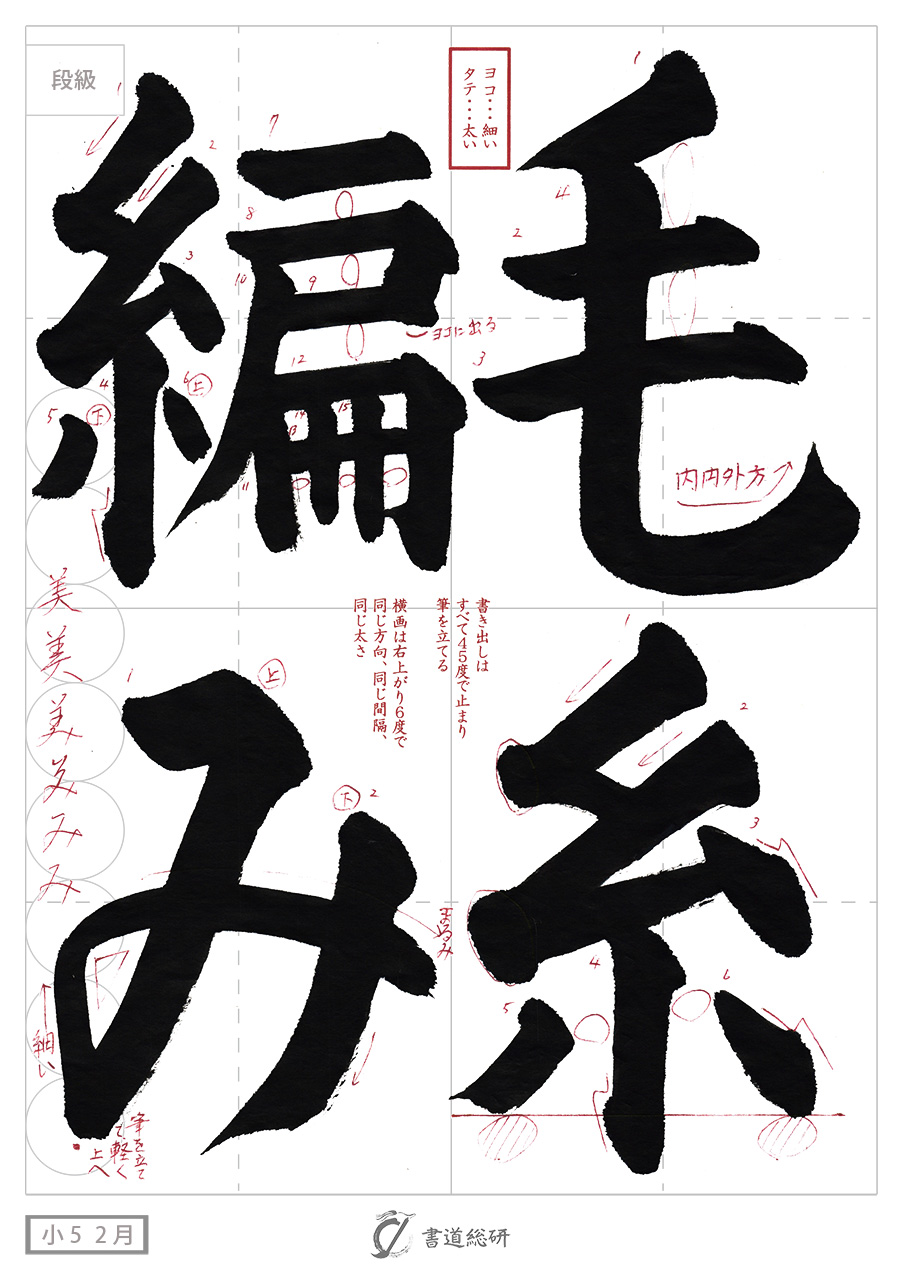 段級
毛糸
編み
ヨコ・・・細い
タテ・・・太い
1
4
2
3
内内外方
書き出しは
すべて45度で止まり
筆を立てる
横画は右上がり6度で
同じ方向、同じ間隔、
同じ太さ
1
2
3
4
5
6
1
2
3
4
5
下
6
上
7
8
9
10
11
12
13
14
15
ヨコに出る
1
上
下
2
まるみ
美
美
み
み
細い
筆を立て
て軽く
上へ
小5 2月
書道総研